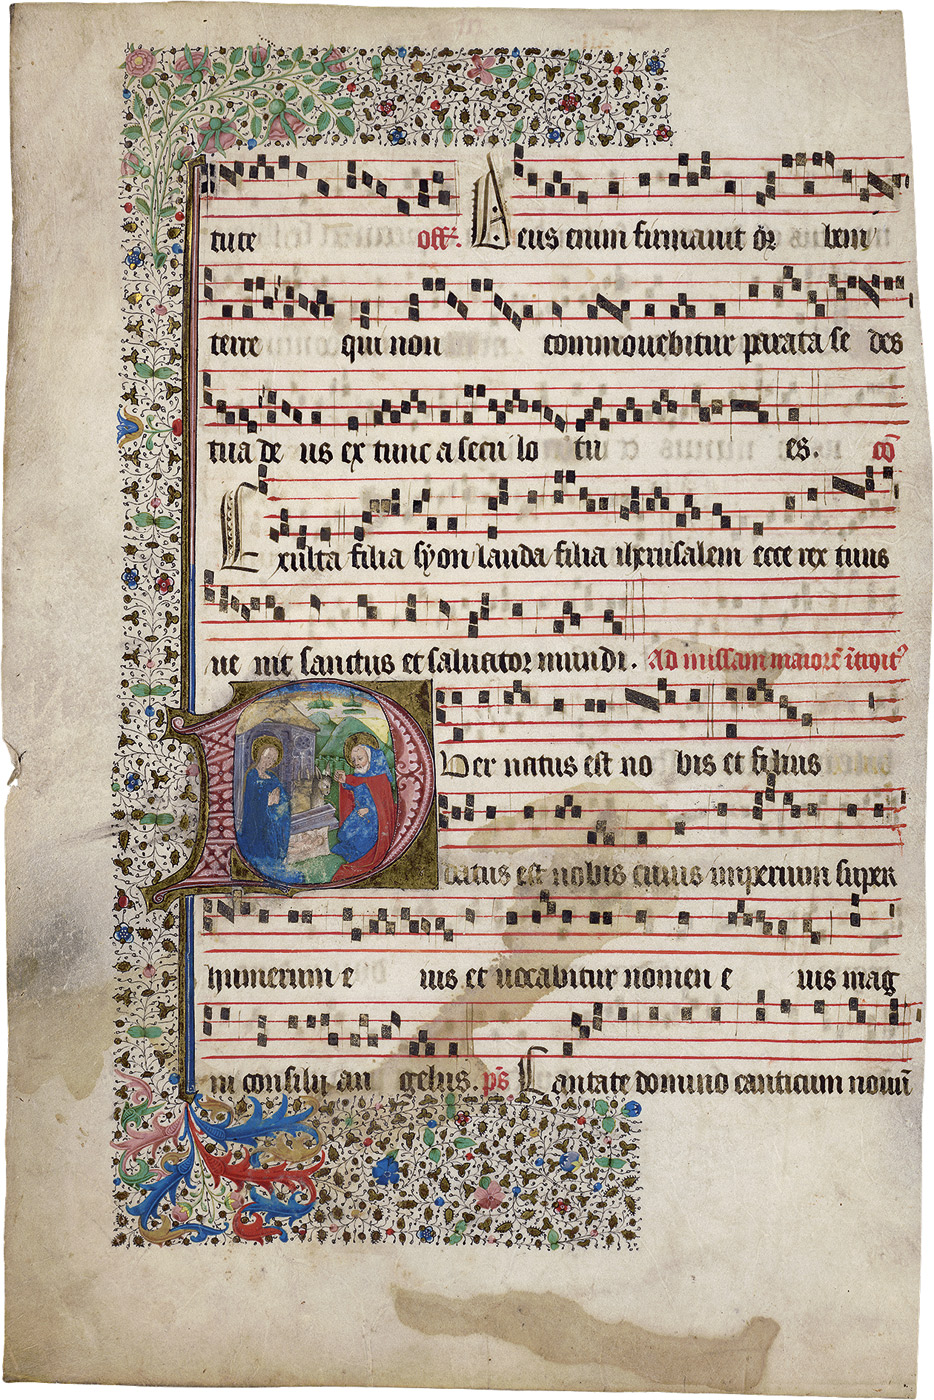 tute off&#x27;. Deus enim firmauit orbem
terre qui non commouebitur parata se des
tua de us ex tunc a secu lo tu es. cō
Exulta filia syon lauda filia iherusalem ecce rex tuus
ue nit sanctus et saluator mundi. Ad missam maiorē ītroit&#x27;
Puer natus est no bis et filius
datus est nobis cuius imperium super
humerum e ius et uocabitur nomen e ius mag
ni consilij an gelus. ps̄ Cantate domino canticum nouū